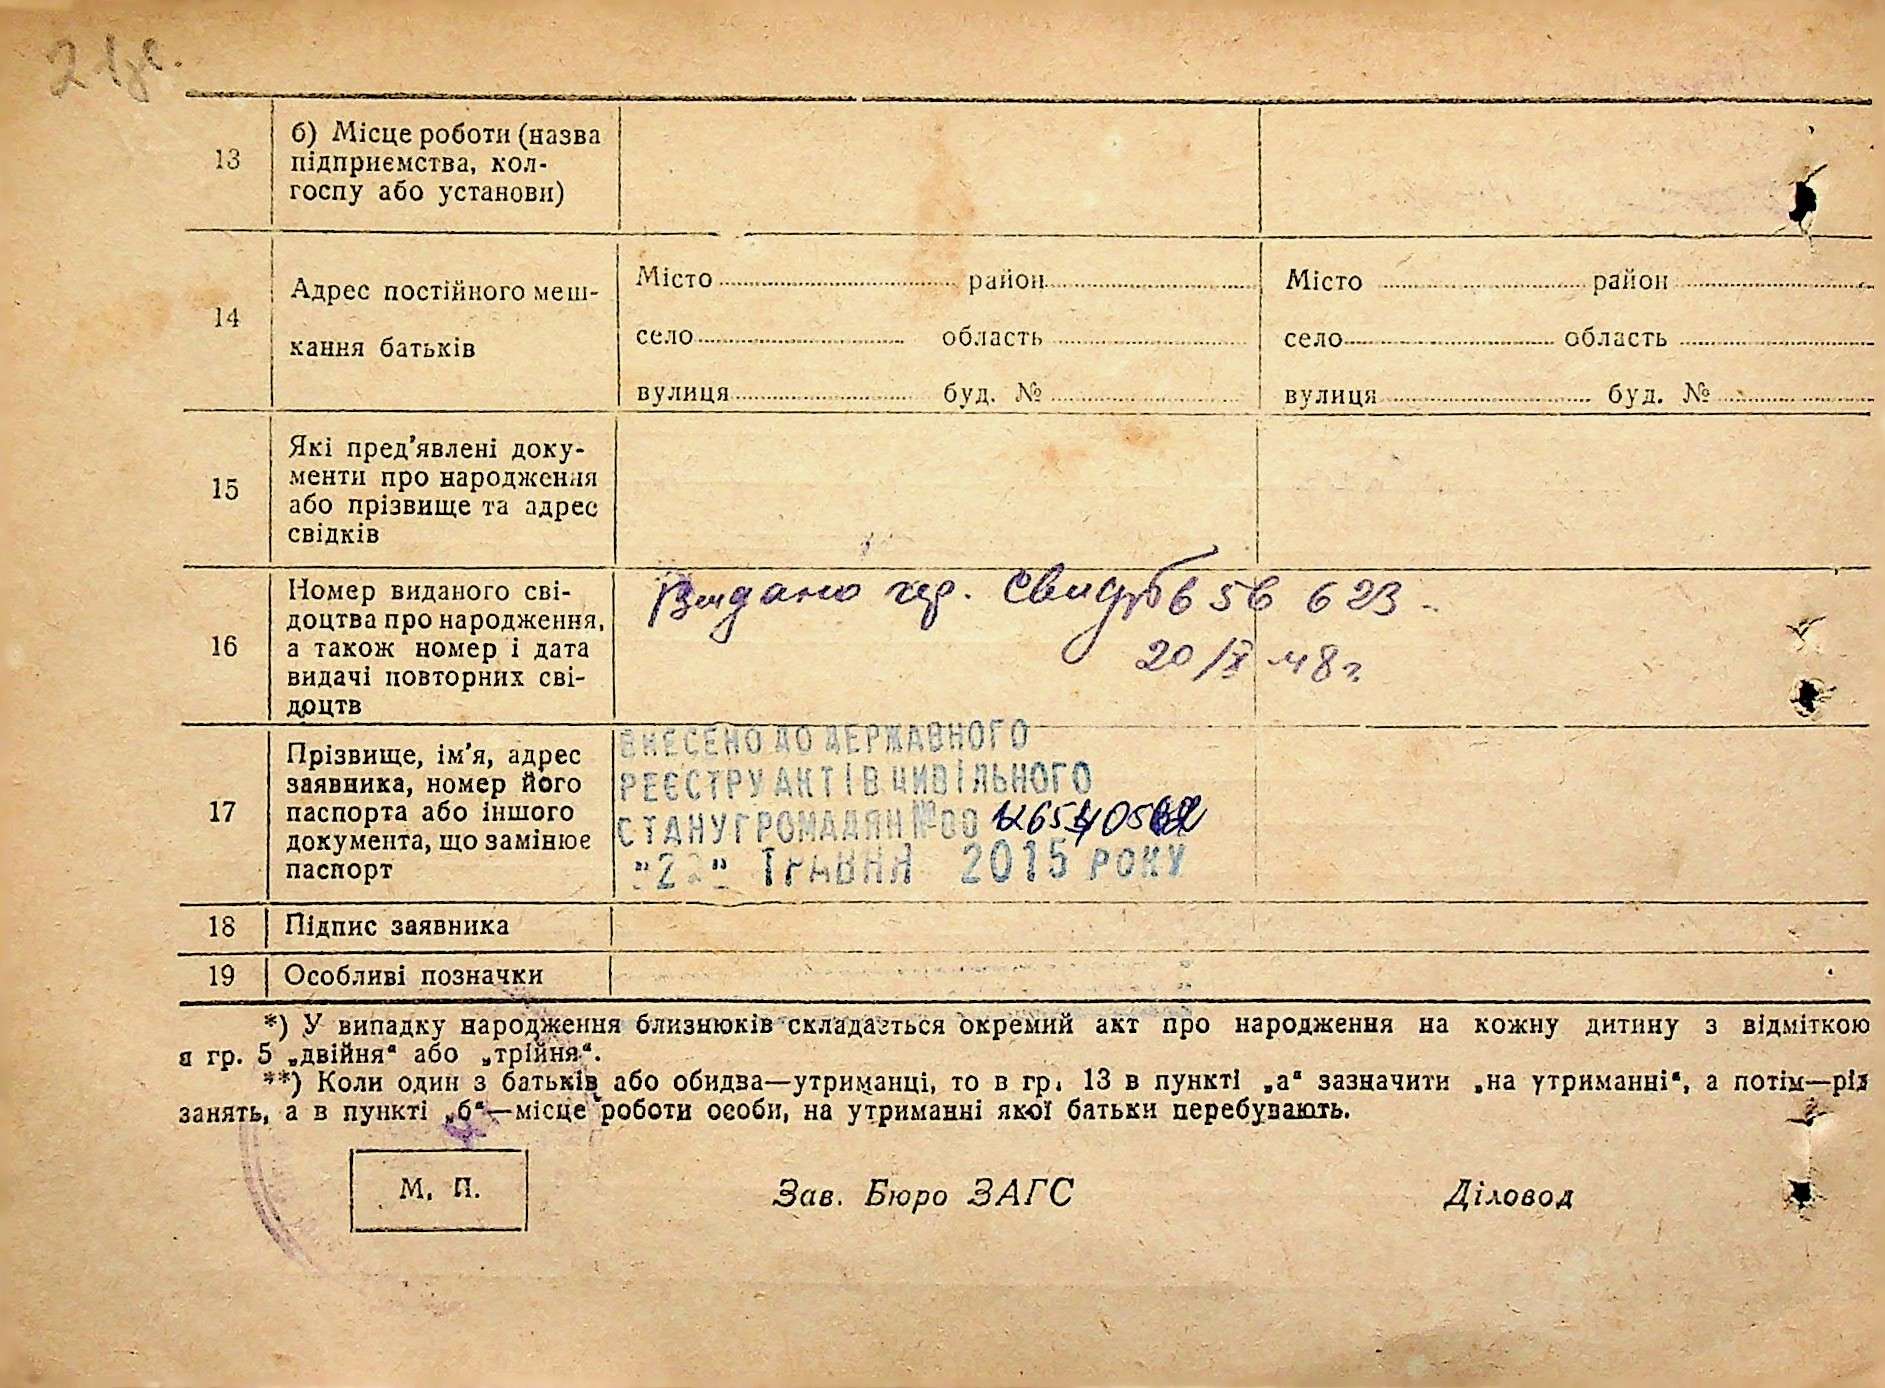 13
б) Місце роботи (назва
підприємства, кол-
госпу або установи)
14
Адрес постійного меш-
кання батьків
Місто район
село область
вулиця буд. №
Місто район
село область
вулиця буд. №
15
Які пред'явлені доку-
менти про народження
або прізвище та адрес
свідків
16
Номер виданого сві-
доцтва про народження,
а також номер і дата
видачі повторних сві-
доцтв
Видано 623
20/X 48 г.
17
Прізвище, ім'я, адрес
заявника, номер його
паспорта або іншого
документа, що замінює
паспорт
ВНЕСЕНО ДО ДЕРЖАВНОГО
РЕЄСТРУ АКТІВ ЦИВІЛЬНОГО
СТАНУ ГРОМАДЯН №00
"22" ТРАВНЯ 2015 РОКУ
18
Підпис заявника
19
Особливі позначки
*) У випадку народження близнюків складається окремий акт про народження на кожну дитину з відміткою
в гр. 5 „двійня“ або „трійня“.
**) Коли один з батьків або обидва—утриманці, то в гр. 13 в пункті „а“ зазначити „на утриманні“, а потім—рід
занять, а в пункті „б“—місце роботи особи, на утриманні якої батьки перебувають.
М. П.
Зав. Бюро ЗАГС
Діловод